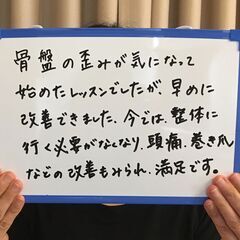 骨盤の歪みが気になって
始めたレッスンでしたが、早めに
改善できました。今では、整体に
行く必要がなくなり、頭痛、巻き爪
などの改善もみられ、満足です。